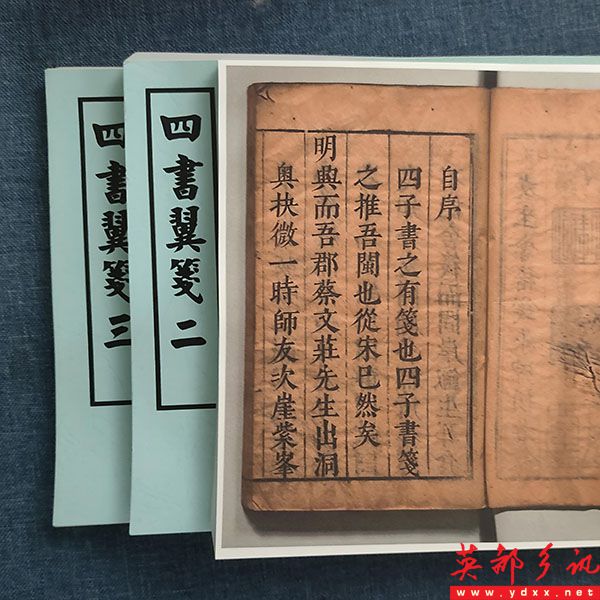 四書翼箋 三
四書翼箋 二
自序
四子書之有箋也四子書箋
之推吾閩也從宋已然矣
明興而吾郡蔡文莊先生出洞
奧抉微一時師友次崖紫峯
英都乡讯
www.ydxx.net